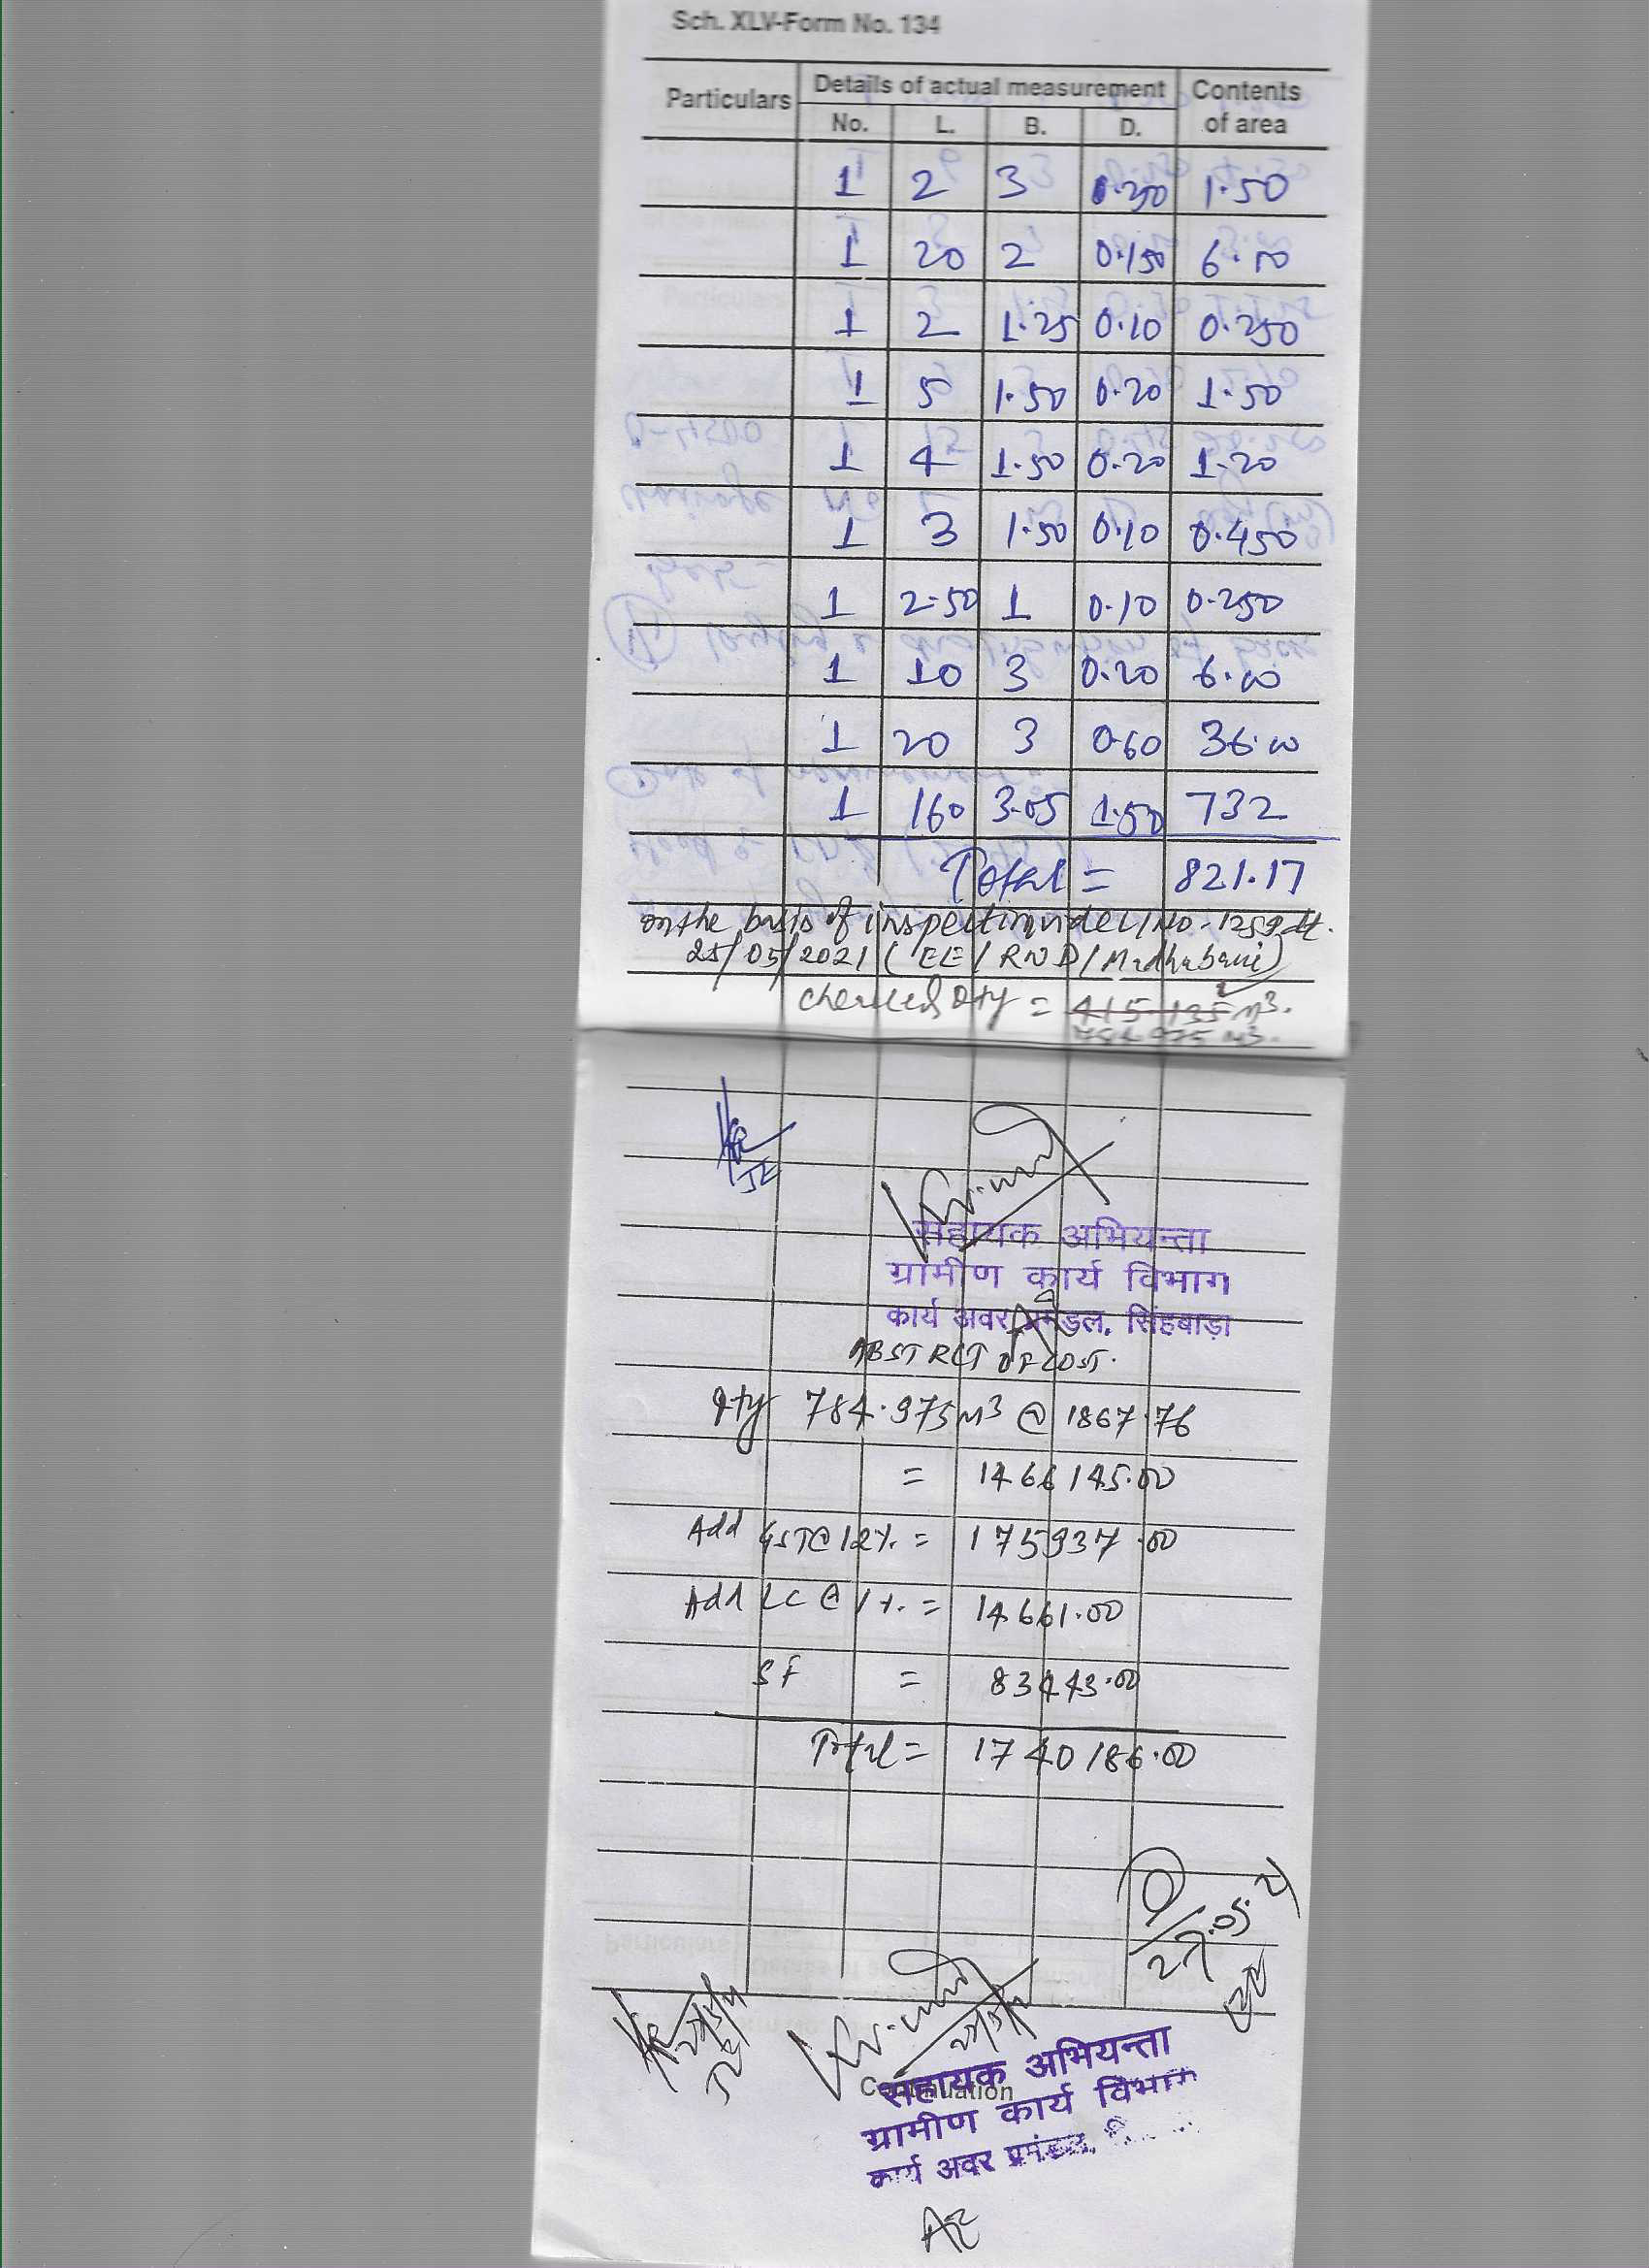 Sch. XLV-Form No. 134
Particulars Details of actual measurement Contents of area
No. L. B. D.
1 2 3 0.250 1.50
1 20 2 0.150 6.00
1 2 1.25 0.10 0.250
1 5 1.50 0.20 1.50
1 4 1.50 0.20 1.20
1 3 1.50 0.10 0.450
1 2.50 1 0.10 0.250
1 10 3 0.20 6.00
1 20 3 0.60 36.00
1 160 3.05 1.50 732
Total = 821.17
on the basis of inspection vide L/NO-1259 dt.
25/05/2021 (EE/RWD/Madhubani)
checked Qty = 415.135 M3.
784.975 M3.
JE
सहायक अभियन्ता
ग्रामीण कार्य विभाग
कार्य अवर प्रमंडल, सिंहवाड़ा
ABSTRCT OF COST.
Qty 784.975 M3 @ 1867.76
= 1466145.00
Add GST@12%. = 175937.00
Add LC @ 1%. = 14661.00
SF = 83443.00
Total = 1740186.00
27.05.21
JE
सहायक अभियन्ता
Continuation
ग्रामीण कार्य विभाग
कार्य अवर प्रमंडल,
AE